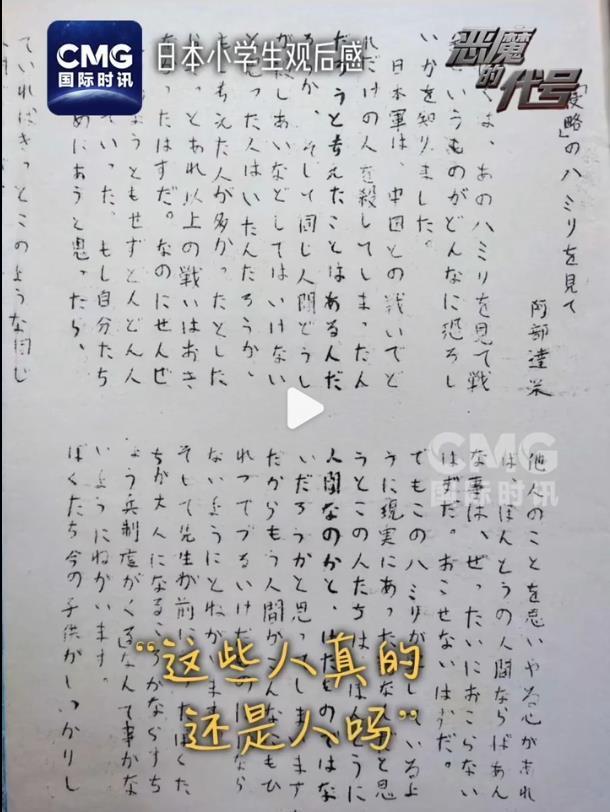 CMG
国际时讯
日本小学生观后感
恶魔的代号
略」のハミリを見て
阿部達栄
くは、あのハミリを見て戦
いうものがどんなに恐ろし
いかを知りました。
日本軍は、中国との戦いでど
れだけの人を殺してしまったん
だろうと考えたことはあるんだ
ろうか。そして同じ人間どうし
しあいなどしてはいけない
と思った人はいたんだろうか、
考えた人が多かったとした
っとあれ以上の戦いはおき
ったはずだ。なのにせんぜ
ようともせずどんどん人
ていった。もし自分たち
めにあうと思ったら、
他人のことを思いやる心があれ
ば、ほんとうの人間ならばあん
な事は、ぜったいにおこらない
はずだ。おこせないはずだ。
でもこのハミリが しているよ
うに現実にあった なんてと思
うとこの人たちは、ほんとうに
人間なのかと、けだものではな
いだろうかと思ってしまいます
だからもう人間が、こんなにもひ
れつでずるいけだ のには なら
ないようにとねが います
そして先生が前に ったぼくた
ちが大人になるころ がならずち
ょう兵制度がくるなんて事がな
いようにねがいます。
ぼくたち今の子供がしっかりし
ていればきっとこのような同じ
CMG
国际时讯
“这些人真的
还是人吗”